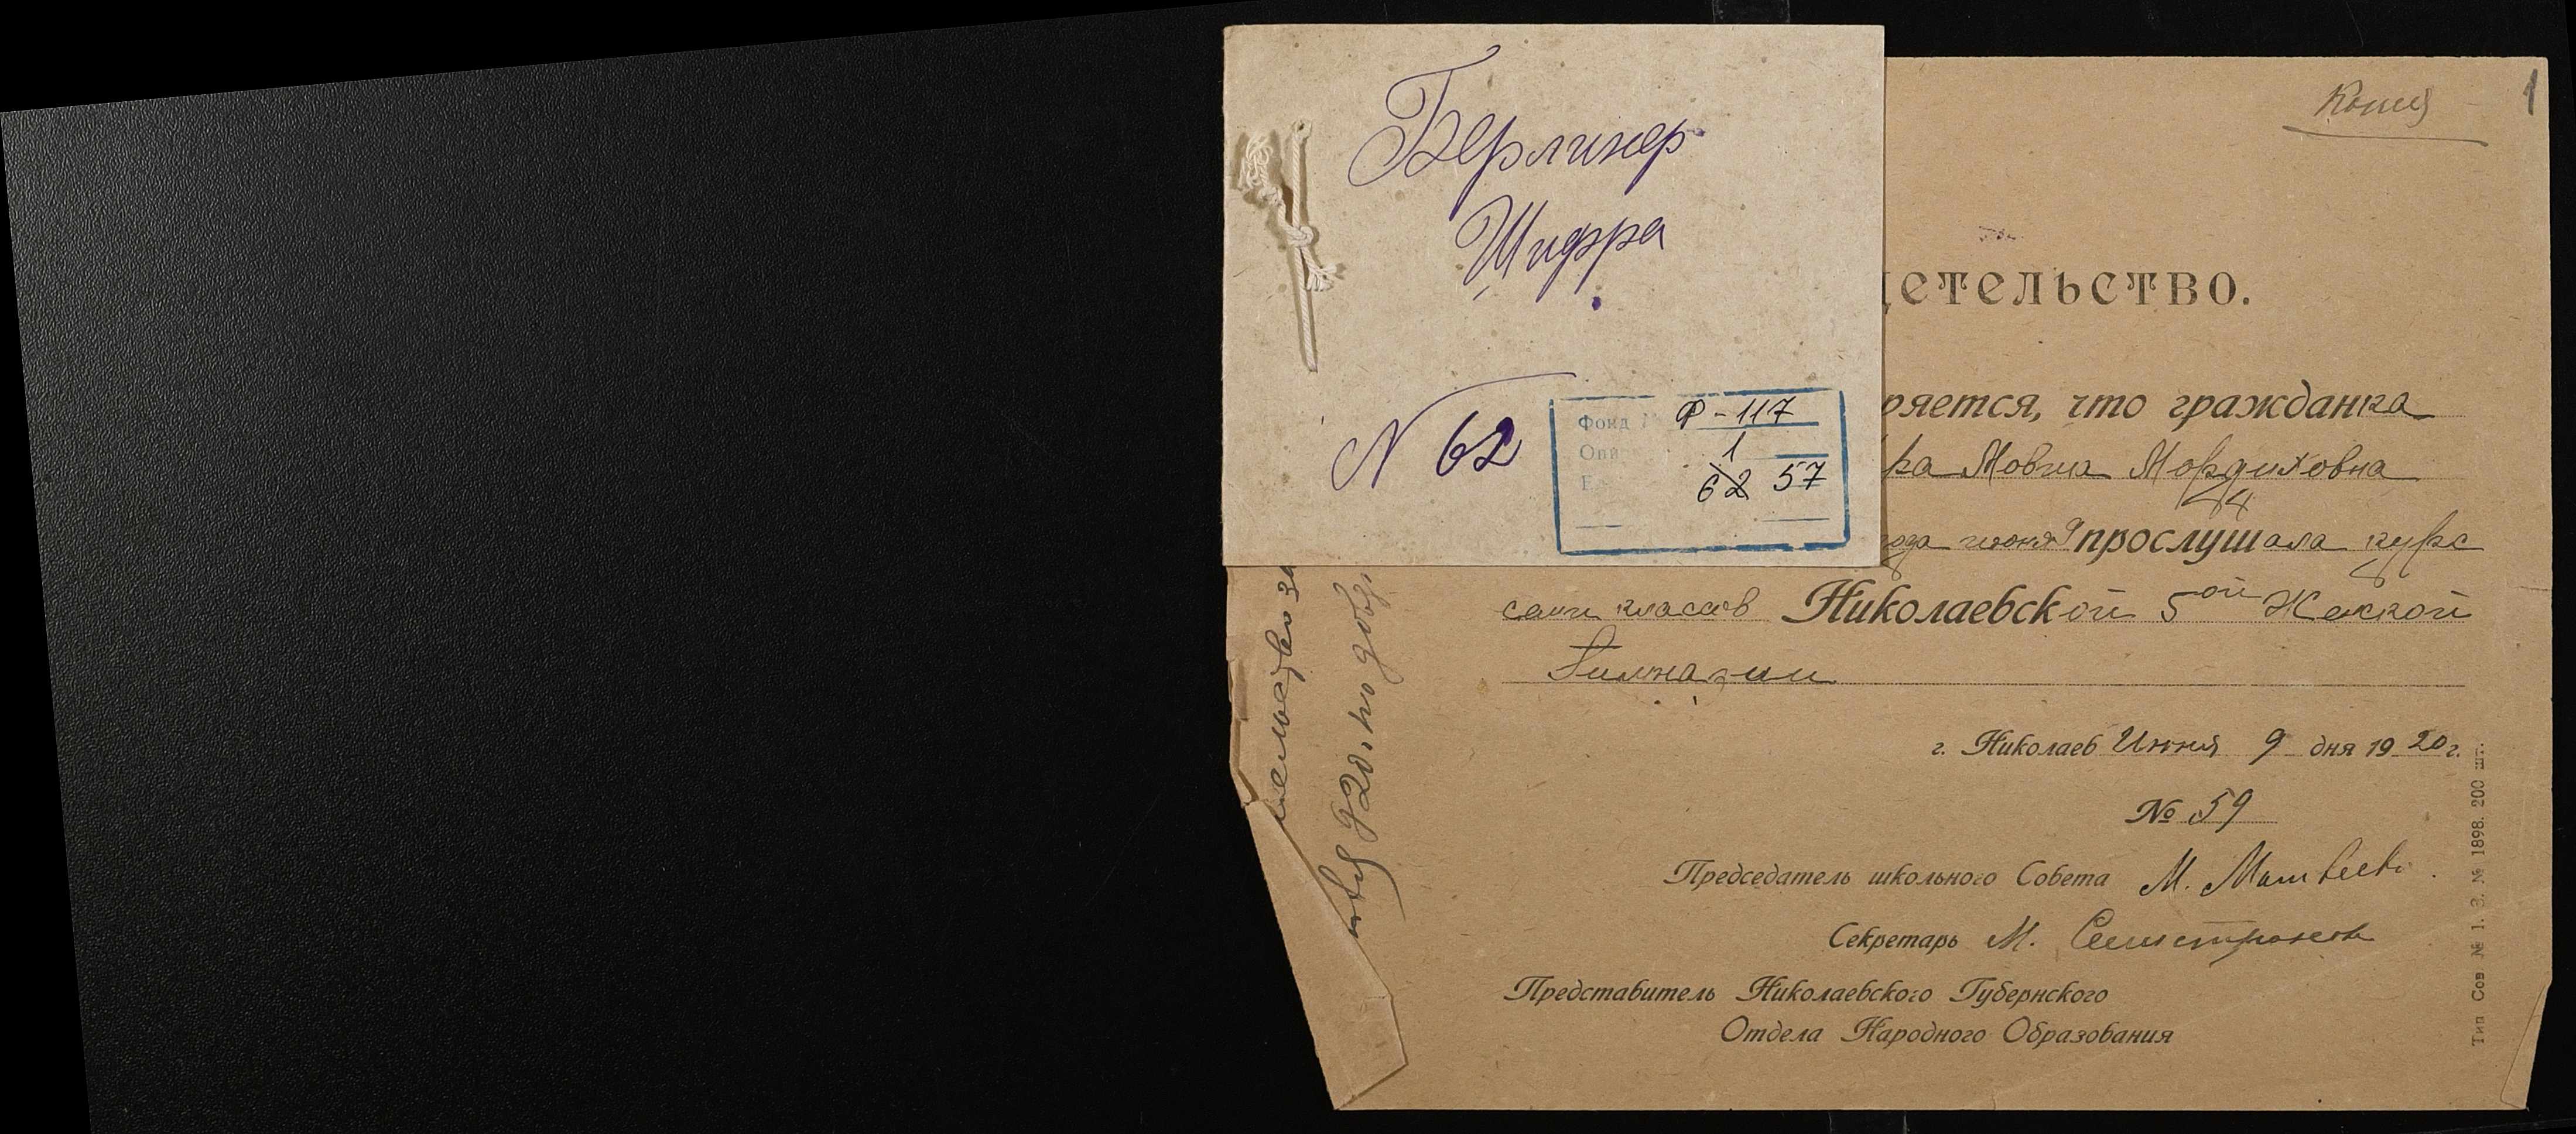 Берлинер
Шифра
N 62
Фонд Ф-117
Опи 1
Е 62 57
Копия
1
детельство.
ряется, что гражданка
ра Мовша Мордиховна
года июня 9 прослушала курс
семи классов Николаевской 5ой Женской
Гимназии
г. Николаев Июня 9 дня 1920 г.
№ 59
Председатель школьного Совета М. Матвеев
Секретарь М.
Представитель Николаевского Губернского
Отдела Народного Образования
Тип Сов № 1. З. № 1898. 200 шт.